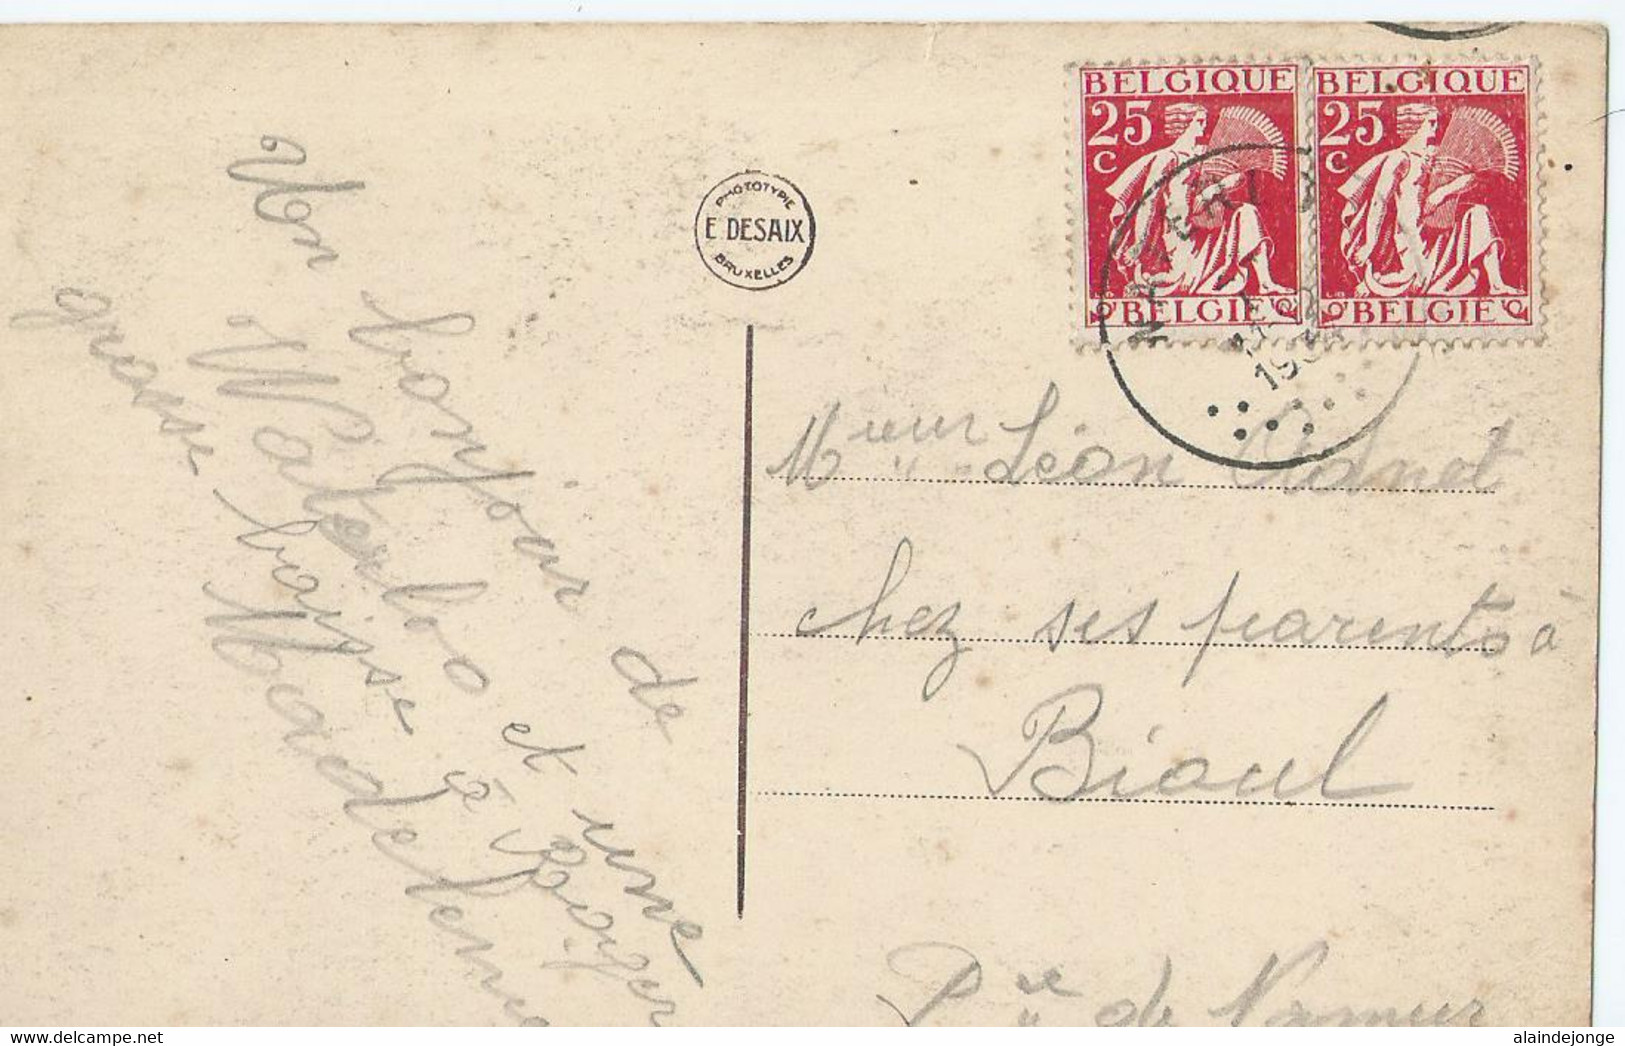 Un bonjour de
Waterloo et une
grosse baise à Roger
Madeleine
PHOTOTYPIE
E DESAIX
BRUXELLES
BELGIQUE
25
C
BELGIE
BELGIQUE
25
C
BELGIE
193
Mʳ Léon
chez ses parents à
Bioul
Pᶜᵉ de Namur
alaindejonge